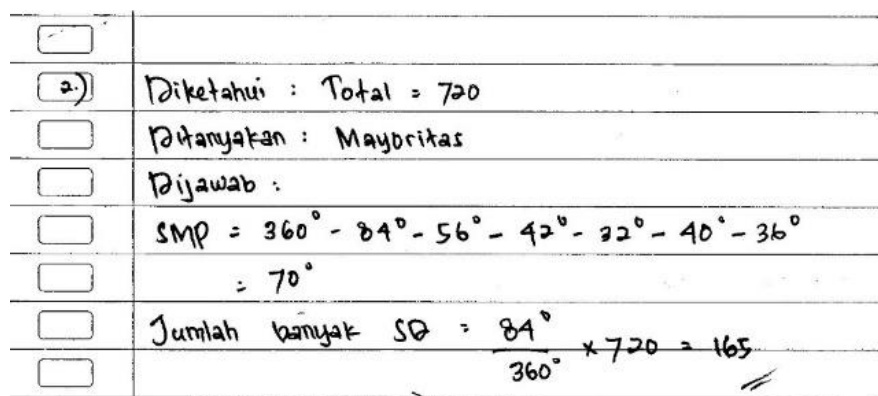 2.) Diketahui : Total = 720
Ditanyakan : Mayoritas
Dijawab :
SMP = 360° - 84° - 56° - 42° - 32° - 40° - 36°
= 70°
Jumlah banyak SD = 84°/360° × 720 = 165